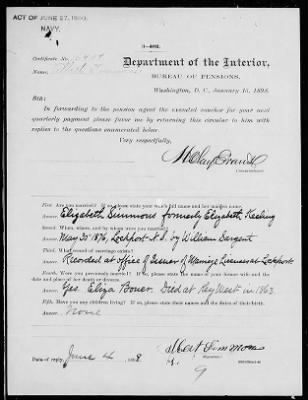 ACT OF JUNE 27, 1890,
NAVY.
3—402.
Department of the Interior,
Certificate No.
Name,
BUREAU OF PENSIONS,
Washington, D. C., January 15, 1898.
SIR:
In forwarding to the pension agent the executed voucher for your next
quarterly payment please favor me by returning this circular to him with
replies to the questions enumerated below.
Very respectfully,
H Clay Evans
Commissioner.
First. Are you married? If so, please state your wife's full name and her maiden name.
Answer. Elizabeth Simmons formerly Elizabeth Keeling
Second. When, where, and by whom were you married?
Answer. May 30 1876, Lockport by William Sargent
Third. What record of marriage exists?
Answer. Recorded at office of Issuer of Marriage Licenses Lockport
Fourth. Were you previously married? If so, please state the name of your former wife and the
date and place of her death or divorce.
Answer. Yes. Eliza Died at Key West in 1863
Fifth. Have you any children living? If so, please state their names and the dates of their birth.
Answer. None
Date of reply, June 4, 1898
Simmons